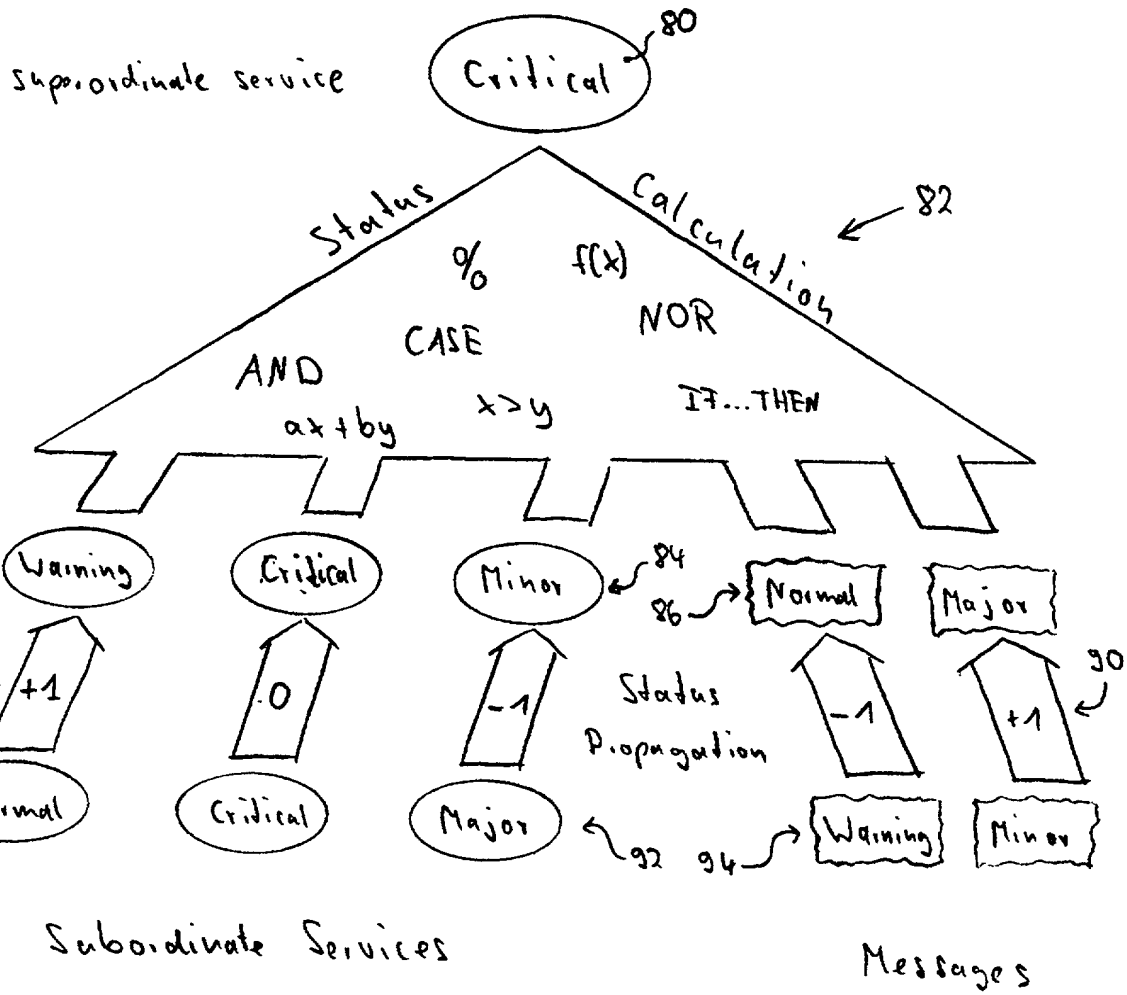 80
superordinate service
Critical
Status
Calculation
82
%
f(x)
CASE
NOR
AND
ax+by
x>y
IF...THEN
Warning
Critical
Minor
84
86
Normal
Major
+1
0
-1
Status
Propagation
-1
+1
90
rmal
Critical
Major
92
94
Warning
Minor
Subordinate Services
Messages